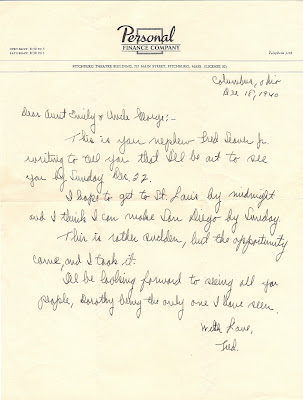 Personal
FINANCE COMPANY
FITCHBURG THEATRE BUILDING, 717 MAIN STREET, FITCHBURG, MASS.
Telephone
Columbus, Ohio
Dec 18, 1940
Dear Aunt Emily & Uncle George;-
This is your nephew Fred Seaver Jr.
writing to tell you that I'll be out to see
you by Sunday Dec. 22.
I hope to get to St. Louis by midnight
and I think I can make San Diego by Sunday.
This is rather sudden, but the opportunity
came and I took it.
I'll be looking forward to seeing all you
people, Dorothy being the only one I have seen.
With Love,
Fred.